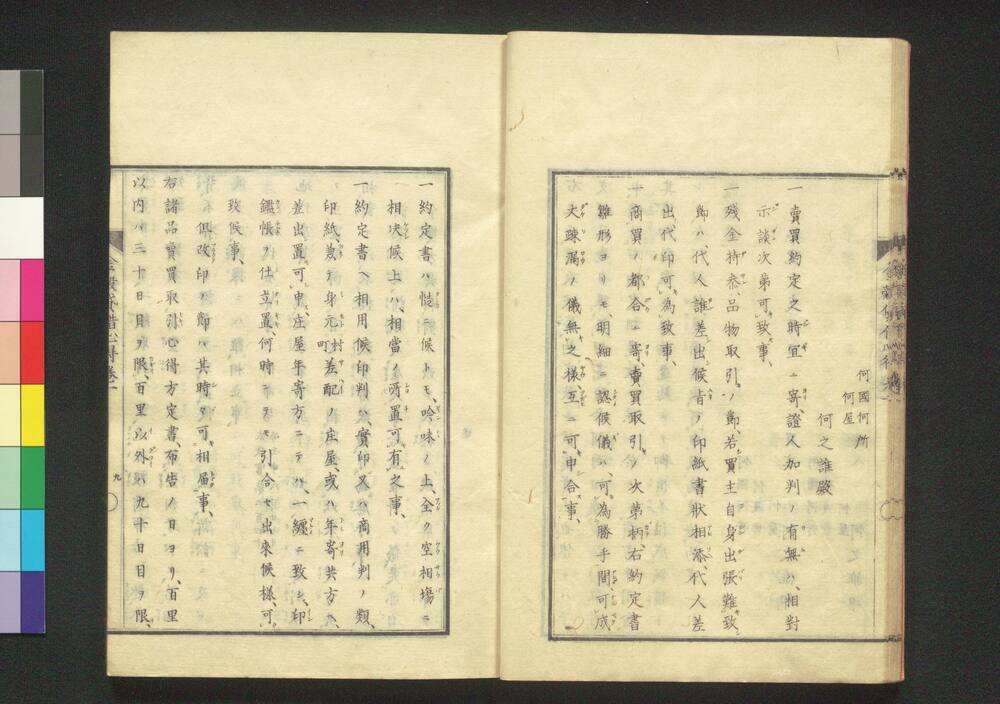 何國何所
何屋
何之誰殿
一賣買約定之時宜ニ寄、證人加判ノ有無ハ、相對
示談次第可致事、
一殘金持參、品物取引ノ節、若買主自身出張難致
節ハ、代人誰差出候旨ノ印紙書狀相添、代人差
出、代印可為致事、
十商買ノ都合ニ寄、賣買取引ノ次第柄、右約定書
雛形ヨリモ、明細ニ認候儀ハ、可為勝手間、可成
丈疎漏ノ儀無之樣、互ニ可申合事、
一約定書ハ慥ニ候トモ、吟味ノ上、全ク空相場ニ
相决候上ハ、相當ノ咎置可有之事、
一約定書ヘ相用候印判ハ、實印又ハ商用判ノ類、
印紙兼テ身元村町差配ノ庄屋、或ハ年寄共方ヘ、
差出置可申、庄屋年寄方ニテハ、一纏ニ致シ、印
鑑帳ヲ仕立置、何時ニテモ引合セ出來候樣、可
致候事、
但改印ノ節ハ其時々可相届事、
右諸品賣買取引心得方定書、布告ノ日ヨリ、百里
以内ハ三十日目ヲ限、百里以外ハ九十日目ヲ限、
九